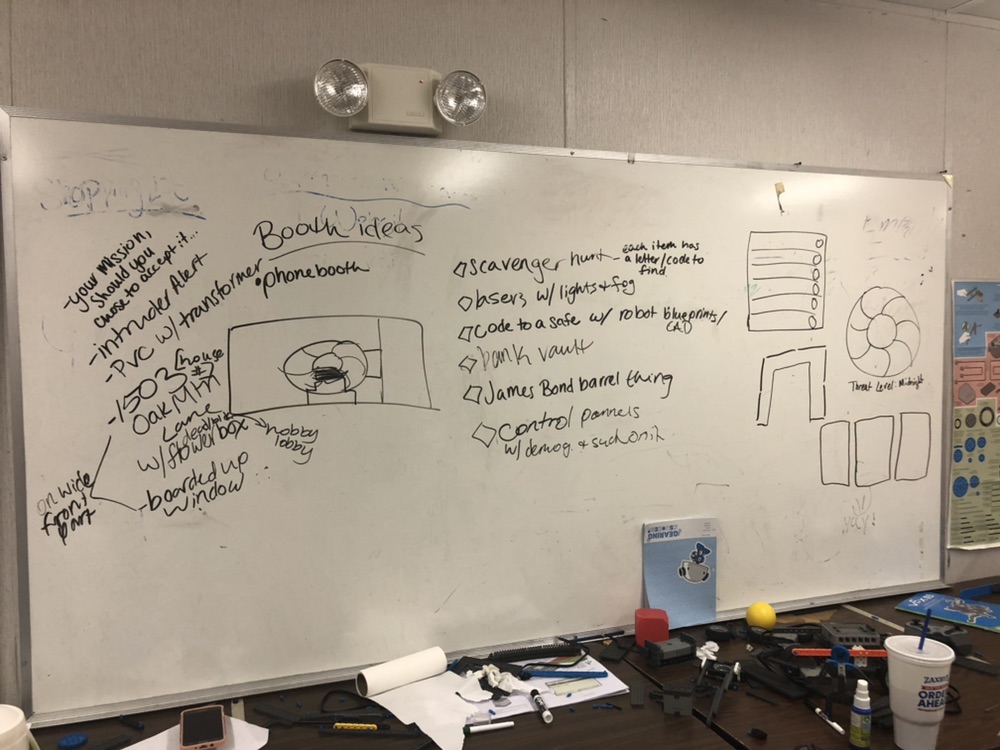 Shopping
Booth ideas
- your mission,
should you
choose to accept it...
- intruder Alert
- PVC w/ transformer
- 1503 (house
#)
Oak MHH
Lane
w/ flower box
- boarded up
window
on wide
front
part
hobby
lobby
• phonebooth
◇ scavenger hunt - each item has
a letter/code to
find
◇ lasers w/ lights + fog
◇ code to a safe w/ robot blueprints/
CAD
◇ bank vault
◇ James Bond barrel thing
◇ Control pannels
w/ demog. & such on it
Threat Level: Midnight
GEARING
ZAXBY'S
ORDER
AHEAD